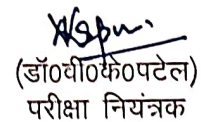 (डॉ०वी०के०पटेल)
परीक्षा नियंत्रक